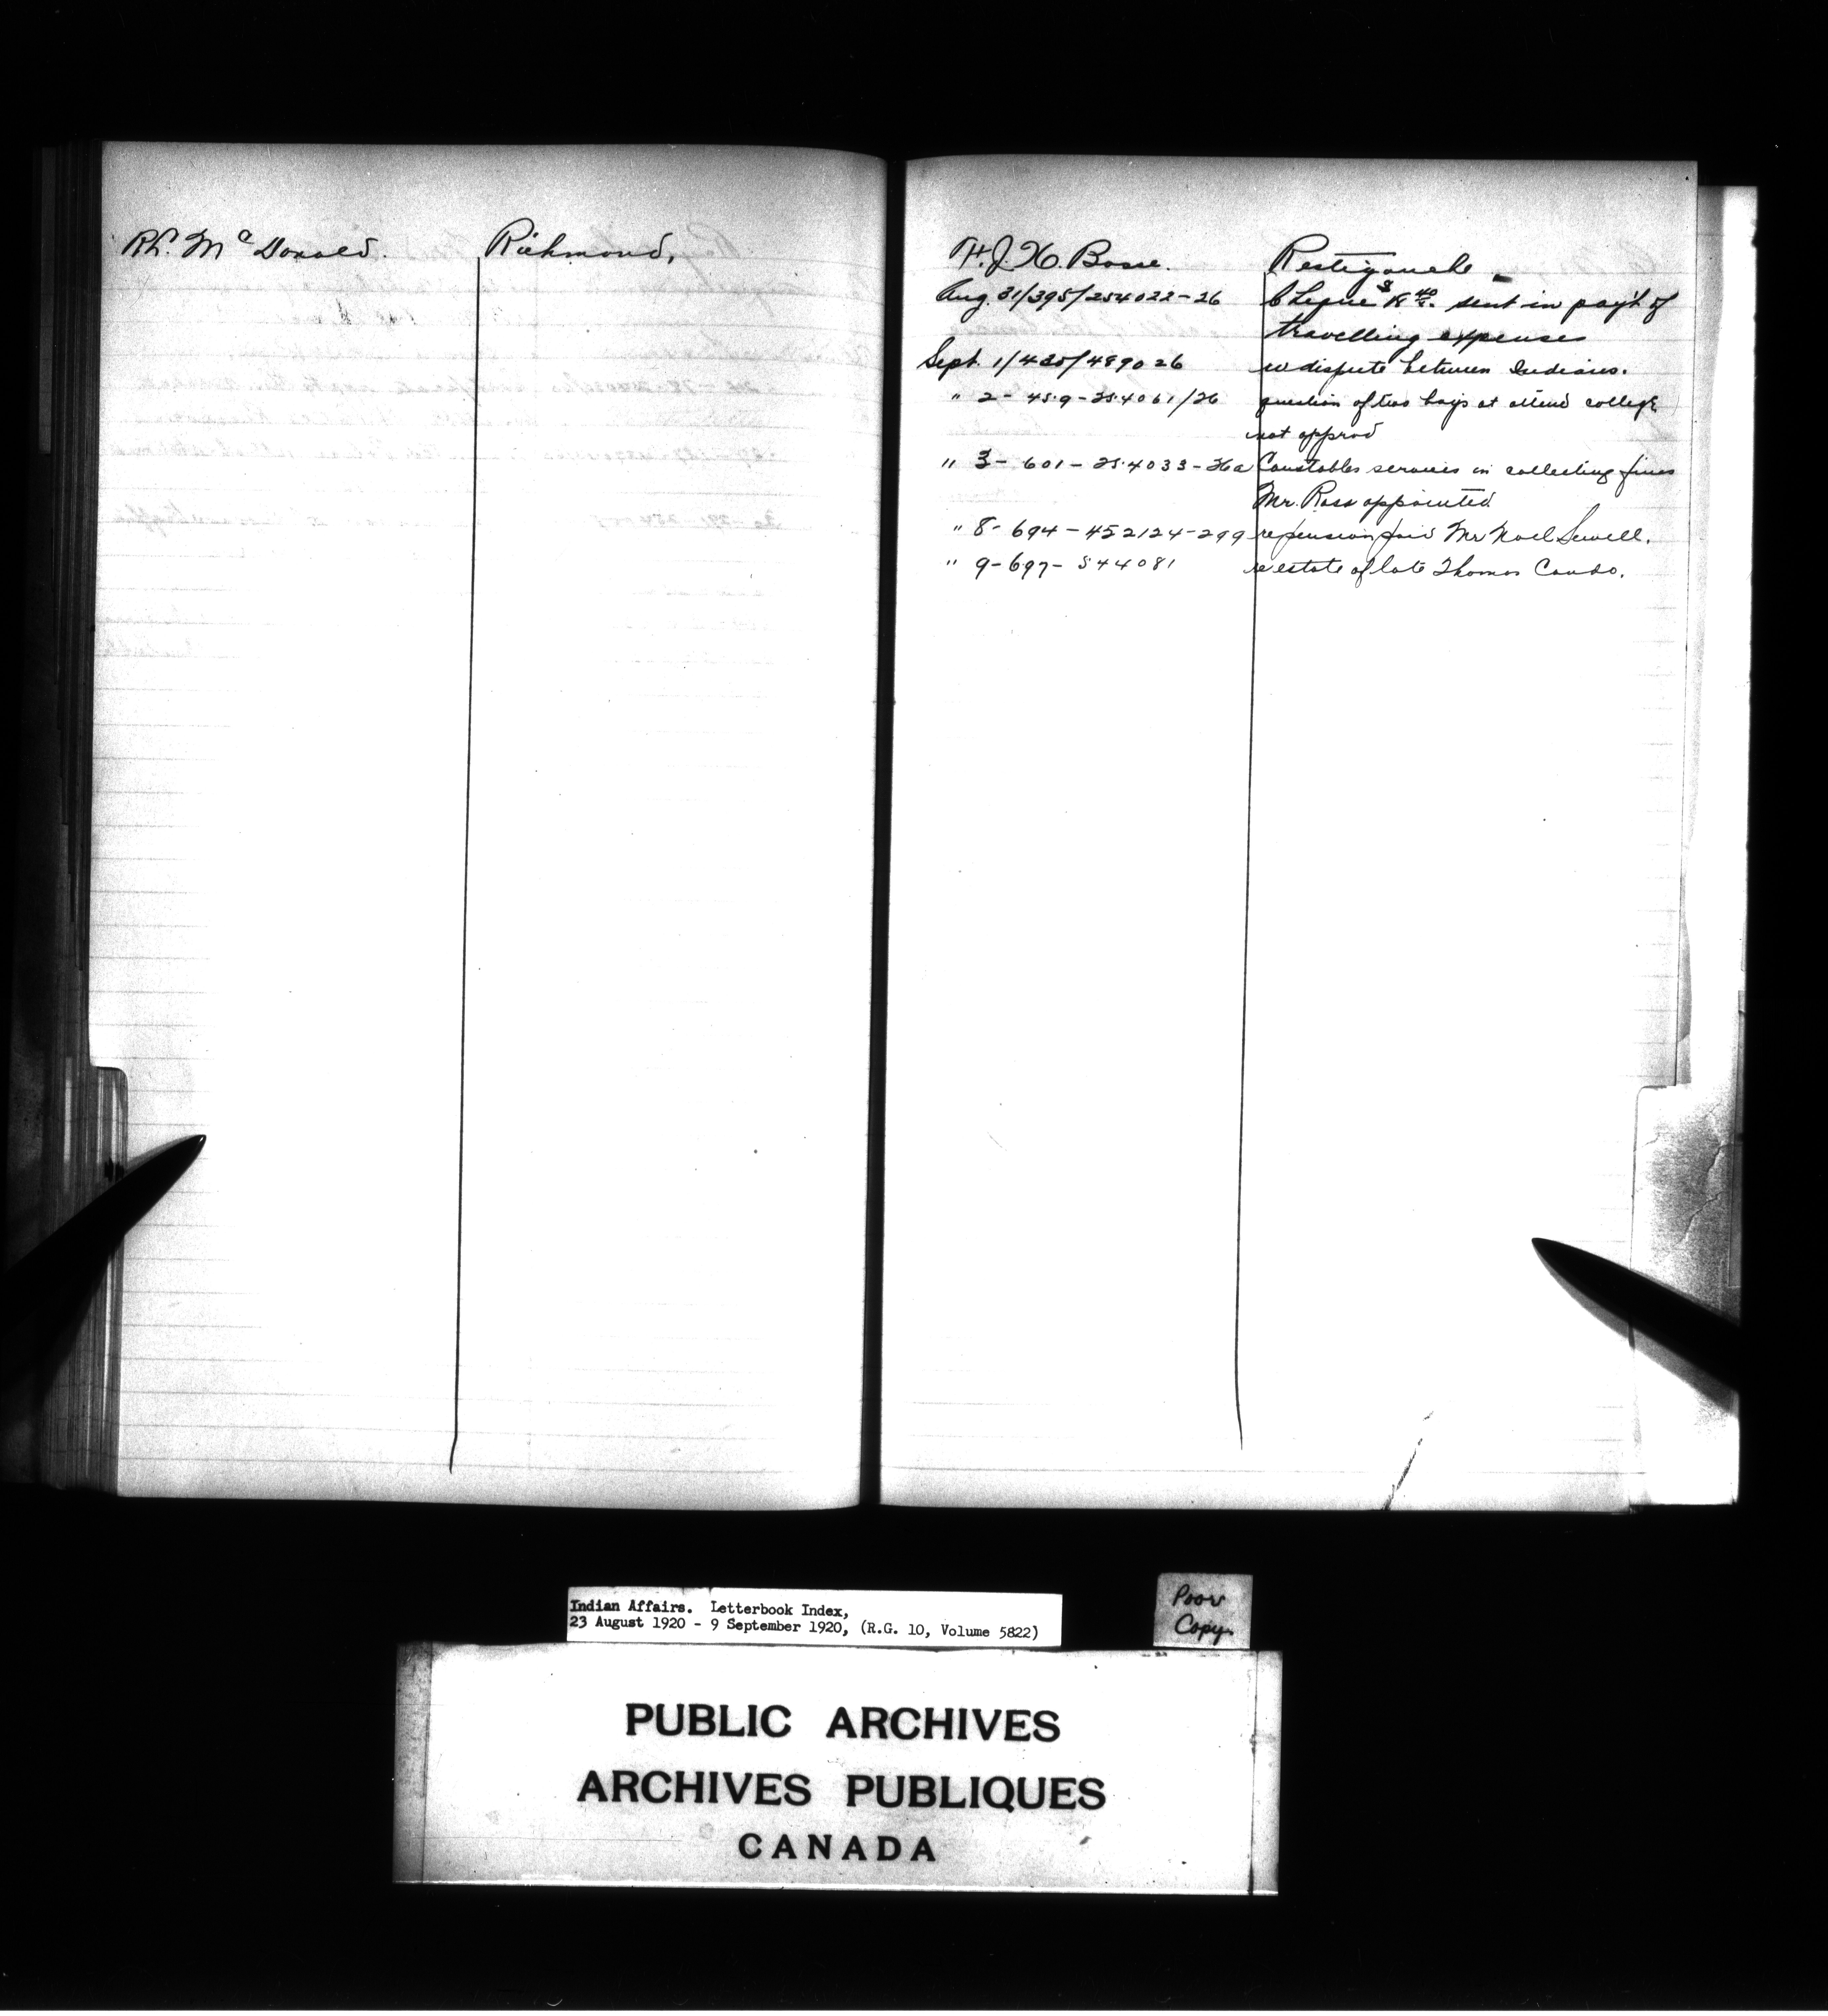 R.L. McDonald. Richmond,
H.J.H. Bosse. Restigouche -
Aug. 31/395/254022-26 Cheque $18 40/c. sent in pay't of
travelling expenses
Sept. 1/435/489026 re dispute between Indians.
" 2 - 459 - 254061/26 question of two boys at attend college
not approd
" 3 - 601 - 254033-26a Constables services in collecting fines
Mr. Ross appointed.
" 8 - 694 - 452124-299 re pension paid Mr Noel Sewell.
" 9 - 697 - 544081 re estate of late Thomas Condo.
Indian Affairs. Letterbook Index,
23 August 1920 - 9 September 1920, (R.G. 10, Volume 5822)
Poor
Copy.
PUBLIC ARCHIVES
ARCHIVES PUBLIQUES
CANADA